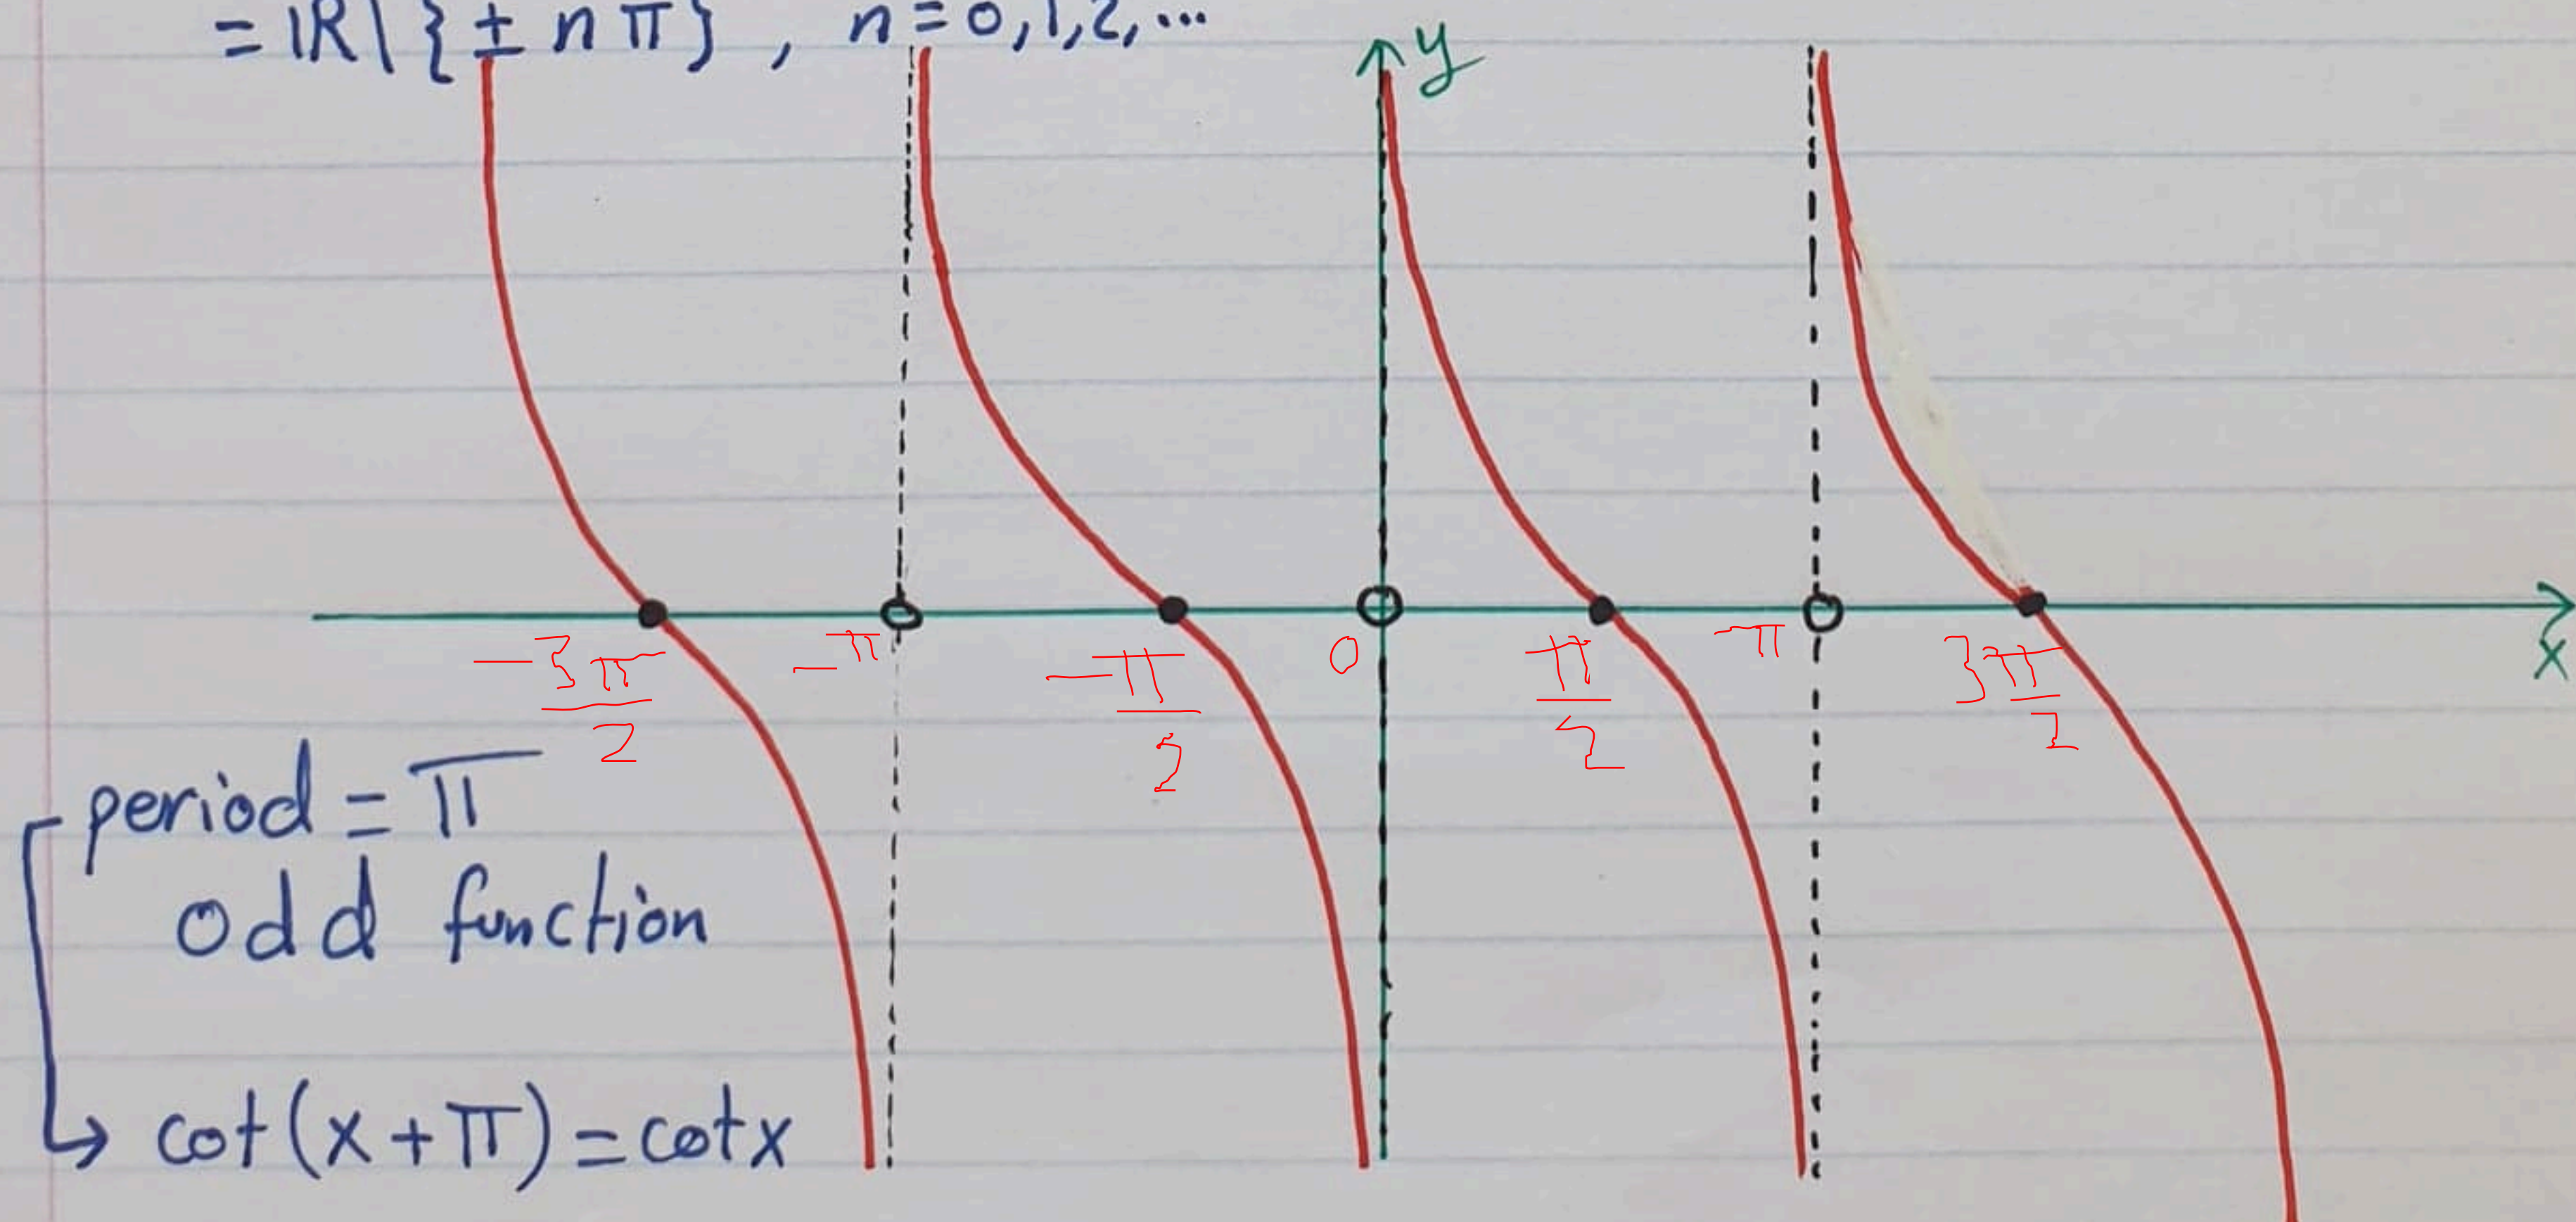 = ℝ \ { ± n π } , n = 0,1,2,...
y
-3π/2 -π -π/2 0 π/2 π 3π/2 x
period = π
odd function
cot(x+π) = cotx